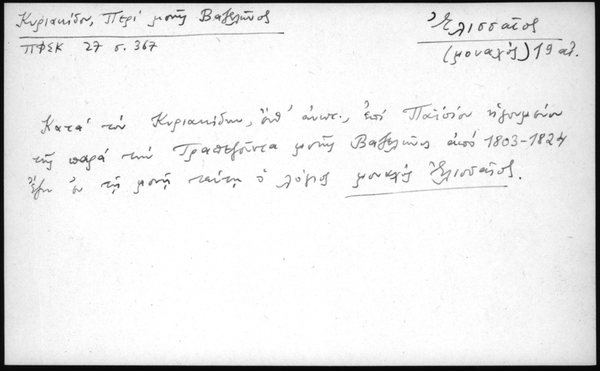 Κυριακίδου, Περί μονῆς Βαζελῶνος
ΠΦΣΚ 27 σ. 367
Ἐλισσαῖος
(μοναχός) 19 αἰ.
Κατά τόν Κυριακίδην, ἔνθ' ἀνωτ., ἐπί Παϊσίου ἡγουμένου
τῆς παρά τήν Τραπεζοῦντα μονῆς Βαζελῶνος ἀπό 1803-1824
ἔζη ἐν τῇ μονῇ ταύτῃ ὁ λόγιος μοναχός Ἐλισσαῖος.